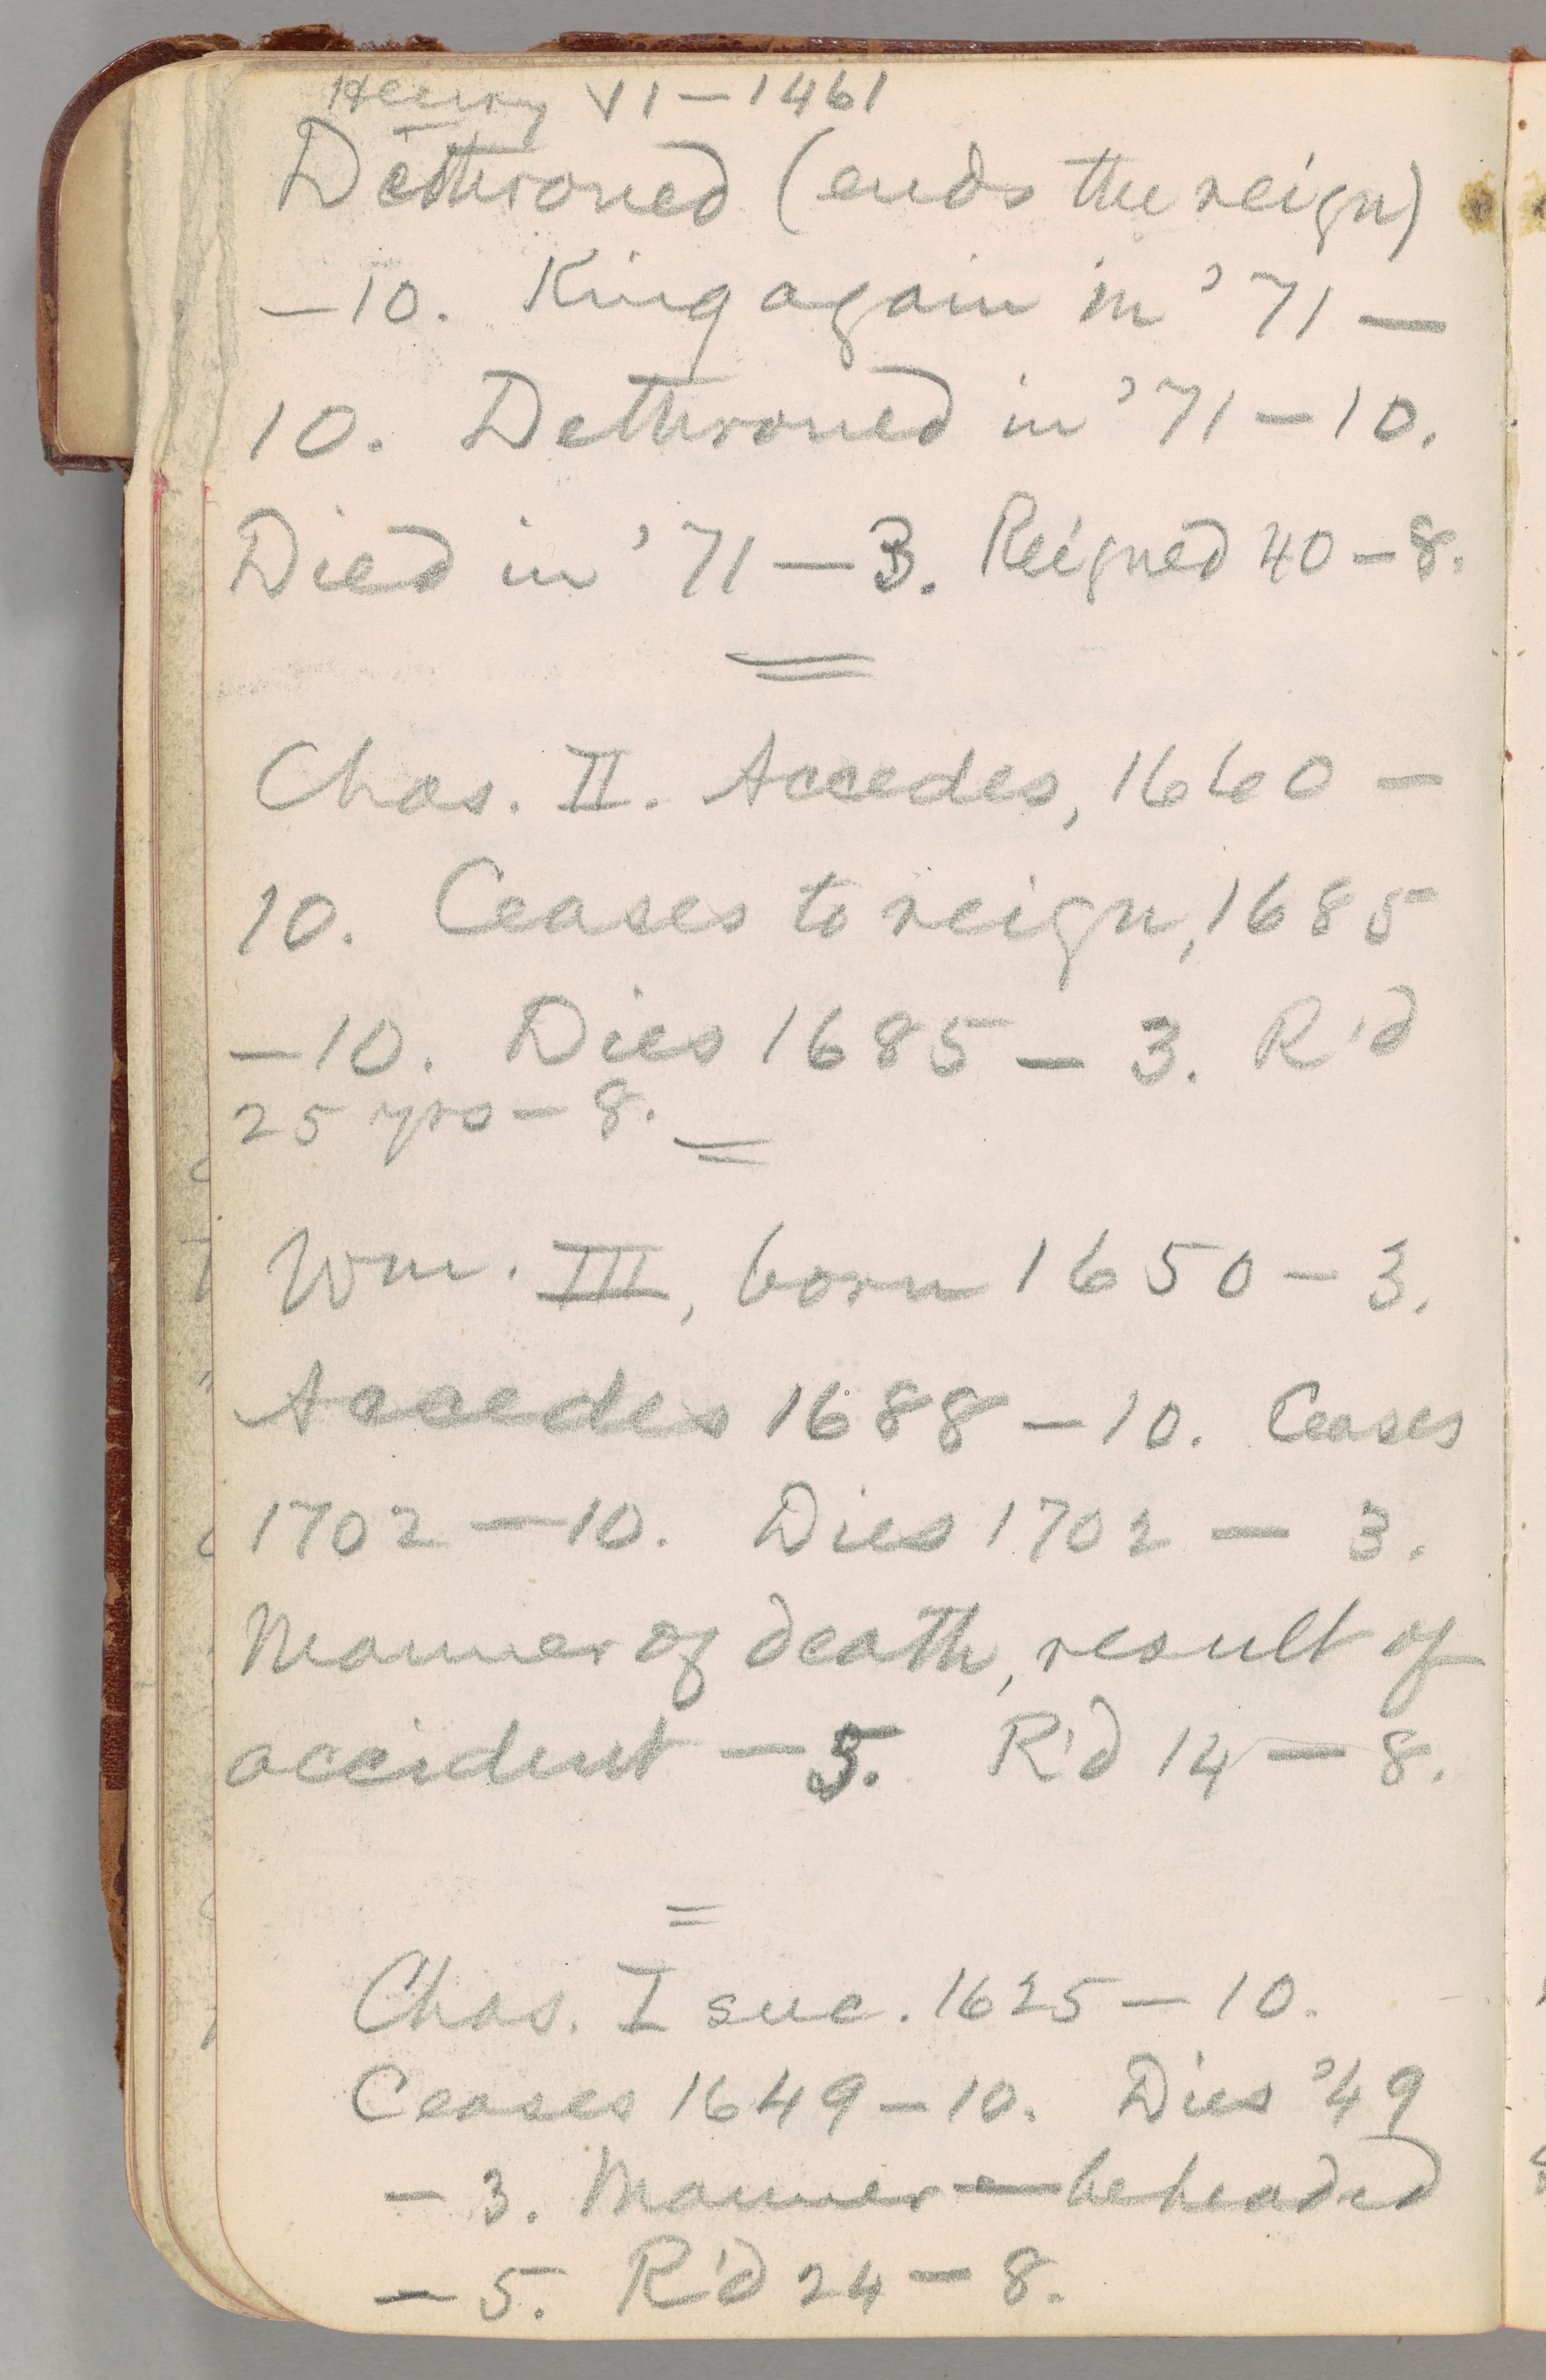 Henry VI — 1461
Dethroned (ends the reign)
— 10. King again in '71 —
10. Dethroned in '71 — 10.
Died in '71 — 3. Reigned 40 — 8.
Chas. II. Accedes, 1660 —
10. Ceases to reign, 1685
— 10. Dies 1685 — 3. R'd
25 yrs — 8.
Wm. III, born 1650 — 3.
Accedes 1688 — 10. Ceases
1702 — 10. Dies 1702 — 3.
Manner of death, result of
accident — 5. R'd 14 — 8.
Chas. I suc. 1625 — 10.
Ceases 1649 — 10. Dies '49
— 3. Manner — beheaded
— 5. R'd 24 — 8.